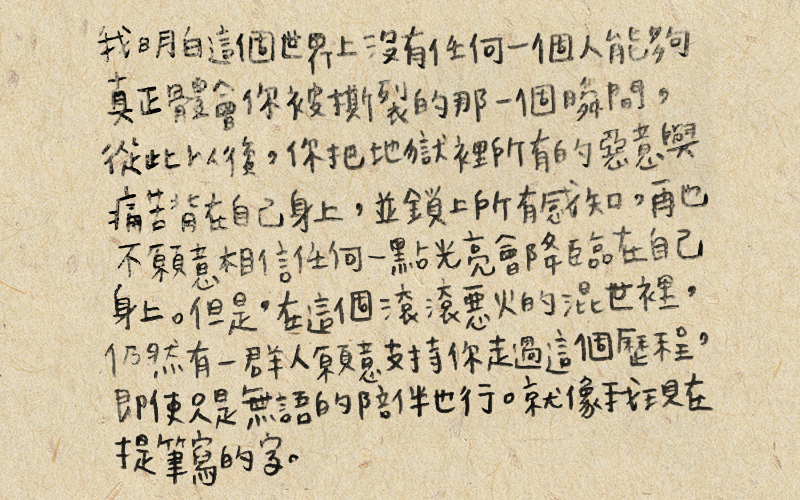 我明白這個世界上沒有任何一個人能夠
真正體會你被撕裂的那一個瞬間，
從此以後，你把地獄裡所有的惡意與
痛苦背在自己身上，並鎖上所有感知，再也
不願意相信任何一點光亮會降臨在自己
身上。但是，在這個滾滾惡火的混世裡，
仍然有一群人願意支持你走過這個歷程，
即使只是無語的陪伴也行。就像我現在
提筆寫的字。